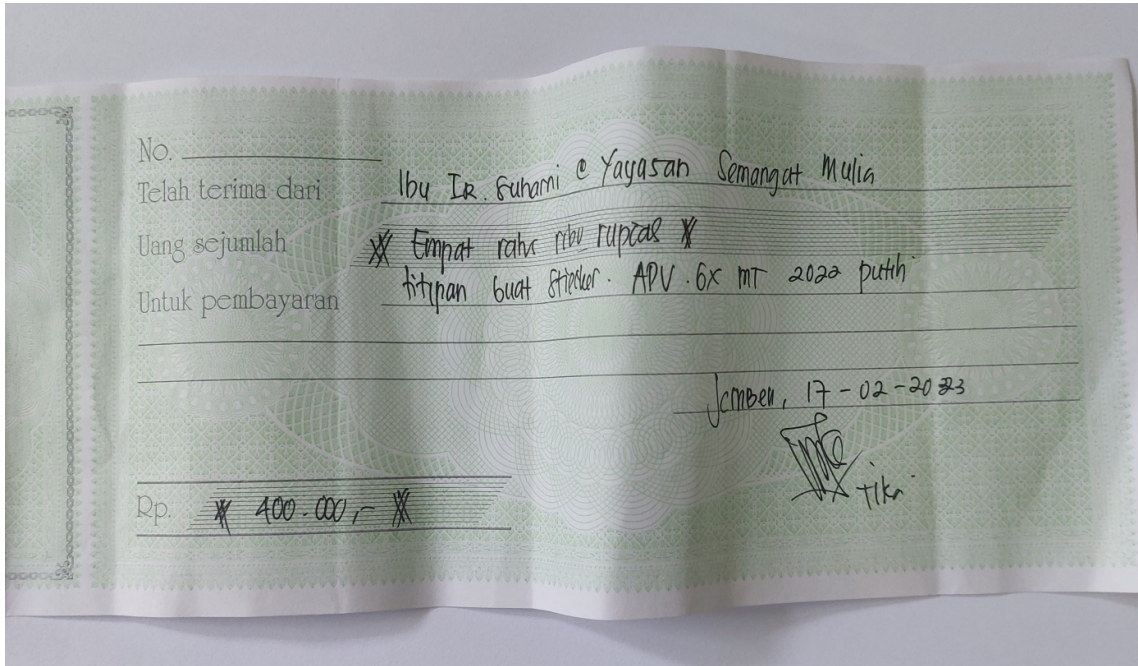 No.
Telah terima dari Ibu IR. Suharni @ Yayasan Semangat Mulia
Uang sejumlah Empat ratus ribu rupias
Untuk pembayaran titipan buat Sticker. APV. GX MT 2022 putih
Jember, 17-02-2023
Tika
Rp. 400.000,-